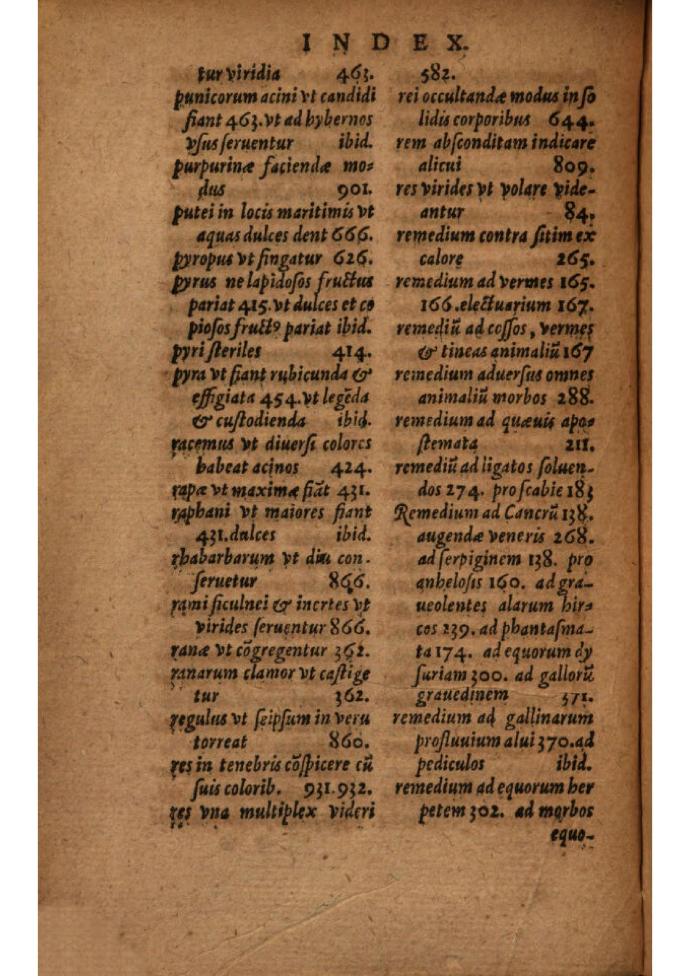 INDEX.
tur viridia 463.
punicorum acini vt candidi
fiant 463. vt ad hybernos
vſus ſeruentur ibid.
purpurinæ faciendæ mo-
dus 901.
putei in locis maritimis vt
aquas dulces dent 666.
pyropus vt fingatur 626.
pyrus ne lapidoſos fructus
pariat 415. vt dulces et co
pioſos fructꝰ pariat ibid.
pyri ſteriles 414.
pyra vt fiant rubicunda &
effigiata 454. vt legēda
& cuſtodienda ibid.
racemus vt diuerſi colores
habeat acinos 424.
rapæ vt maximæ fiāt 431.
raphani vt maiores fiant
431. dulces ibid.
rhabarbarum vt diu con-
ſeruetur 866.
rami ficulnei & inertes vt
virides ſeruentur 866.
ranæ vt cōgregentur 362.
ranarum clamor vt caſtige
tur 362.
regulus vt ſeipſum in veru
torreat 860.
res in tenebris cōſpicere cū
ſuis colorib. 931. 932.
res vna multiplex videri
582.
rei occultandæ modus in ſo
lidis corporibus 644.
rem abſconditam indicare
alicui 809.
res virides vt volare vide-
antur 84.
remedium contra ſitim ex
calore 265.
remedium ad vermes 165.
166. electuarium 167.
remediū ad coſſos, vermes
& tineas animaliū 167
remedium aduerſus omnes
animaliū morbos 288.
remedium ad quæuis apo-
ſtemata 211.
remediū ad ligatos ſoluen-
dos 274. pro ſcabie 183
Remedium ad Cancrū 138.
augendæ veneris 268.
ad ſerpiginem 138. pro
anheloſis 160. ad gra-
ueolentes alarum hir-
cos 239. ad phantaſma-
ta 174. ad equorum dy
ſuriam 300. ad gallorū
grauedinem 371.
remedium ad gallinarum
profluuium alui 370. ad
pediculos ibid.
remedium ad equorum her
petem 302. ad morbos
equo-